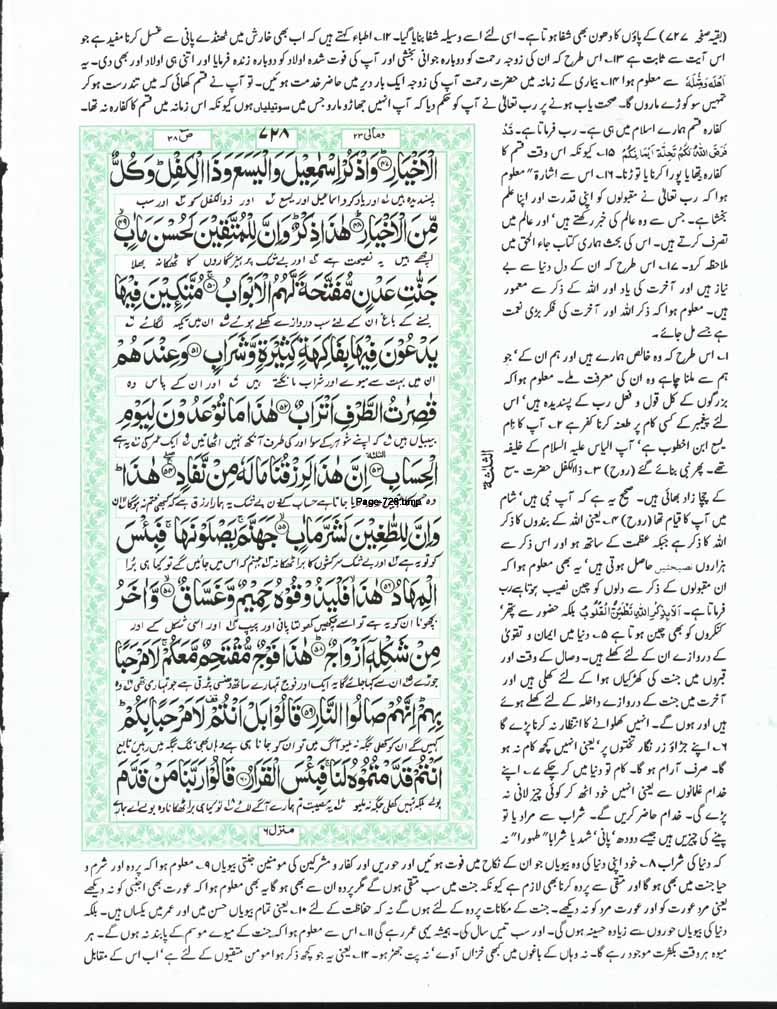 (بقیہ صفحہ ۷۲۷) کے پاؤں کا دھون بھی شفا ہوتا ہے۔ اسی لئے اسے وسیلہ شفا بنایا گیا۔ ۱۲۔ اطباء کہتے ہیں کہ اب بھی خارش میں ٹھنڈے پانی سے غسل کرنا مفید ہے جو
اس آیت سے ثابت ہے ۱۳۔ اس طرح کہ ان کی زوجہ رحمت کو دوبارہ جوانی بخشی اور آپ کی فوت شدہ اولاد کو دوبارہ زندہ فرمایا اور اتنی ہی اولاد اور بھی دی۔ یہ
اَهْلَهٗ وَمِثْلَهُ سے معلوم ہوا ۱۴۔ بیماری کے زمانہ میں حضرت رحمت آپ کی زوجہ ایک بار دیر میں حاضر خدمت ہوئیں۔ تو آپ نے قسم کھائی کہ میں تندرست ہو کر
تمہیں سو کوڑے ماروں گا۔ صحت یاب ہونے پر رب تعالیٰ نے آپ کو حکم دیا کہ آپ انہیں جھاڑو مارو جس میں سو تیلیاں ہوں کیونکہ اس زمانہ میں قسم کا کفارہ نہ تھا۔
کفارہ قسم ہمارے اسلام میں ہی ہے۔ رب فرماتا ہے۔ قَدْ
فَرَضَ اللّٰهُ لَكُمْ تَحِلَّةَ اَيْمَانِكُمْ ۱۵۔ کیونکہ اس وقت قسم کا
کفارہ یہ تھا یا پورا کرنا یا توڑنا۔ ۱۶۔ اس سے اشارۃً معلوم
ہوا کہ رب تعالیٰ نے مقبولوں کو اپنی قدرت اور اپنا علم
بخشا ہے۔ جس سے وہ عالم کی خبر رکھتے ہیں' اور عالم میں
تصرف کرتے ہیں۔ اس کی بحث ہماری کتاب جاء الحق میں
ملاحظہ کرو۔ ۱۷۔ اس طرح کہ ان کے دل دنیا سے بے
نیاز ہیں اور آخرت کی یاد اور اللہ کے ذکر سے معمور
ہیں۔ معلوم ہوا کہ ذکر اللہ اور آخرت کی فکر بڑی نعمت
ہے جسے مل جائے۔
۱۔ اس طرح کہ وہ خالص ہمارے ہیں اور ہم ان کے' جو
ہم سے ملنا چاہے وہ ان کی معرفت ملے۔ معلوم ہوا کہ
بزرگوں کے کل قول و فعل رب کے پسندیدہ ہیں' اس
لئے پیغمبر کے کسی کام پر طعنہ کرنا کفر ہے ۲۔ آپ کا نام
یسع ابن اخطوب ہے' آپ الیاس علیہ السلام کے خلیفہ
تھے۔ پھر نبی بنائے گئے (روح) ۳۔ ذوالکفل حضرت یسع
کے چچا زاد بھائی ہیں۔ صحیح یہ ہے کہ آپ نبی ہیں' شام
میں آپ کا قیام تھا (روح) ۴۔ یعنی اللہ کے بندوں کا ذکر
اللہ کا ذکر ہے جبکہ عظمت کے ساتھ ہو اور اس ذکر سے
ہزاروں نصیحتیں حاصل ہوتی ہیں' یہ بھی معلوم ہوا کہ
ان مقبولوں کے ذکر سے دلوں کو چین نصیب ہوتا ہے رب
فرماتا ہے۔ اَلَا بِذِكْرِ اللّٰهِ تَطْمَئِنُّ الْقُلُوْبُ بلکہ حضور سے پتھر'
کنکروں کو بھی چین ہوتا ہے ۵۔ دنیا میں ایمان و تقویٰ
کے دروازے ان کے لئے کھلے ہیں۔ وصال کے وقت اور
قبروں میں جنت کی کھڑکیاں ہوا کے لئے کھلی ہیں اور
آخرت میں جنت کے دروازے داخلہ کے لئے کھلے ہوئے
ہیں اور ہوں گے۔ انہیں کھلوانے کا انتظار نہ کرنا پڑے گا
۶۔ اپنے جڑاؤ زر نگار تختوں پر' یعنی انہیں کچھ کام نہ ہو
گا۔ صرف آرام ہو گا۔ کام تو دنیا میں کر چکے ۷۔ اپنے
خدام غلمانوں سے یعنی انہیں خود اٹھ کر کوئی چیز لانی نہ
پڑے گی۔ خدام حاضر کریں گے۔ شراب سے مراد یا تو
پینے کی چیزیں ہیں جیسے دودھ' پانی' شہد یا شرابا" طہورا" نہ
ص ۳۸
۷۲۸
ومالی ۲۳
الْاَخْيَارِ ۝۴۷ وَاذْكُرْ اِسْمٰعِيْلَ وَالْيَسَعَ وَذَا الْكِفْلِ ؕ وَكُلٌّ
پسندیدہ ہیں اور یاد کرو اسماعیل اور یسع اور ذوالکفل کو اور سب
مِّنَ الْاَخْيَارِ ۝۴۸ هٰذَا ذِكْرٌ ؕ وَاِنَّ لِلْمُتَّقِيْنَ لَحُسْنَ مَاٰبٍ ۝۴۹
اچھے ہیں یہ نصیحت ہے اور بے شک پرہیزگاروں کا ٹھکانہ بھلا
جَنّٰتِ عَدْنٍ مُّفَتَّحَةً لَّهُمُ الْاَبْوَابُ ۝۵۰ مُتَّكِـِٕيْنَ فِيْهَا
بسنے کے باغ ان کے لئے سب دروازے کھلے ہوئے ان میں تکیہ لگائے
يَدْعُوْنَ فِيْهَا بِفَاكِهَةٍ كَثِيْرَةٍ وَّشَرَابٍ ۝۵۱ وَعِنْدَهُمْ
ان میں بہت سے میوے اور شراب مانگتے ہیں اور ان کے پاس وہ
قٰصِرٰتُ الطَّرْفِ اَتْرَابٌ ۝۵۲ هٰذَا مَا تُوْعَدُوْنَ لِيَوْمِ
بیبیاں ہیں کہ اپنے شوہر کے سوا اور کی طرف آنکھ نہیں اٹھاتیں ایک عمر کی یہ ہے
الْحِسَابِ ۝۵۳ اِنَّ هٰذَا لَرِزْقُنَا مَا لَهٗ مِنْ نَّفَادٍ ۝۵۴ هٰذَا ؕ
Page-728.bmp
وَاِنَّ لِلطّٰغِيْنَ لَشَرَّ مَاٰبٍ ۝۵۵ جَهَنَّمَ ۚ يَصْلَوْنَهَا ۚ فَبِئْسَ
کو تو یہ ہے اور بے شک سرکشوں کا برا ٹھکانا جہنم کہ اس میں جائیں گے تو کیا ہی برا
الْمِهَادُ ۝۵۶ هٰذَا ۙ فَلْيَذُوْقُوْهُ حَمِيْمٌ وَّغَسَّاقٌ ۝۵۷ وَّاٰخَرُ
بچھونا ان کو یہ ہے تو اسے چکھیں کھولتا پانی اور پیپ اور اسی شکل کے اور
مِنْ شَكْلِهٖۤ اَزْوَاجٌ ۝۵۸ هٰذَا فَوْجٌ مُّقْتَحِمٌ مَّعَكُمْ ۚ لَا مَرْحَبًۢا
جوڑے ان سے کہا جائے گا یہ ایک اور فوج تمہارے ساتھ دھنسی پڑتی ہے جو تمہاری تھی وہ
بِهِمْ ؕ اِنَّهُمْ صَالُوا النَّارِ ۝۵۹ قَالُوْا بَلْ اَنْتُمْ ۫ لَا مَرْحَبًۢا بِكُمْ ؕ
کہیں گے ان کو کھلی جگہ نہ ملیو آگ میں تو ان کو جانا ہی ہے وہاں بھی تنگ جگہ میں رہیں تابع
اَنْتُمْ قَدَّمْتُمُوْهُ لَنَا ۚ فَبِئْسَ الْقَرَارُ ۝۶۰ قَالُوْا رَبَّنَا مَنْ قَدَّمَ
بولے بلکہ تمہیں کھلی جگہ نہ ملیو یہ مصیبت تم ہمارے آگے لائے تو کیا ہی برا ٹھکانا وہ بولے اے ہمارے
منزل ۶
الثلثة
کہ دنیا کی شراب ۸۔ خود اپنی دنیا کی وہ بیویاں جو ان کے نکاح میں فوت ہوئیں اور حوریں اور کفار و مشرکین کی مومنین جنتی بیویاں ۹۔ معلوم ہوا کہ پردہ اور شرم و
حیا جنت میں بھی ہو گا اور متقی سے پردہ کرنا بھی لازم ہے کیونکہ جنت میں سب متقی ہوں گے مگر پردہ ان سے بھی ہو گا یہ بھی معلوم ہوا کہ عورت بھی اجنبی کو نہ دیکھے
یعنی مرد عورت کو اور عورت مرد کو نہ دیکھے۔ جنت کے مکانات پردہ کے لئے ہوں گے نہ کہ حفاظت کے لئے ۱۰۔ یعنی تمام بیویاں حسن میں اور عمر میں یکساں ہیں۔ بلکہ
دنیا کی بیویاں حوروں سے زیادہ حسینہ ہوں گی۔ اور سب تیس سال کی۔ ہمیشہ یہی عمر رہے گی ۱۱۔ اس سے معلوم ہوا کہ جنت کے میوے موسم کے پابند نہ ہوں گے۔ ہر
میوہ ہر وقت بکثرت موجود رہے گا۔ نہ وہاں کے باغوں میں کبھی خزاں آوے' نہ پت جھڑ ہو۔ ۱۲۔ یعنی یہ جو کچھ ذکر ہوا مومن متقیوں کے لئے ہے' اب اس کے مقابل